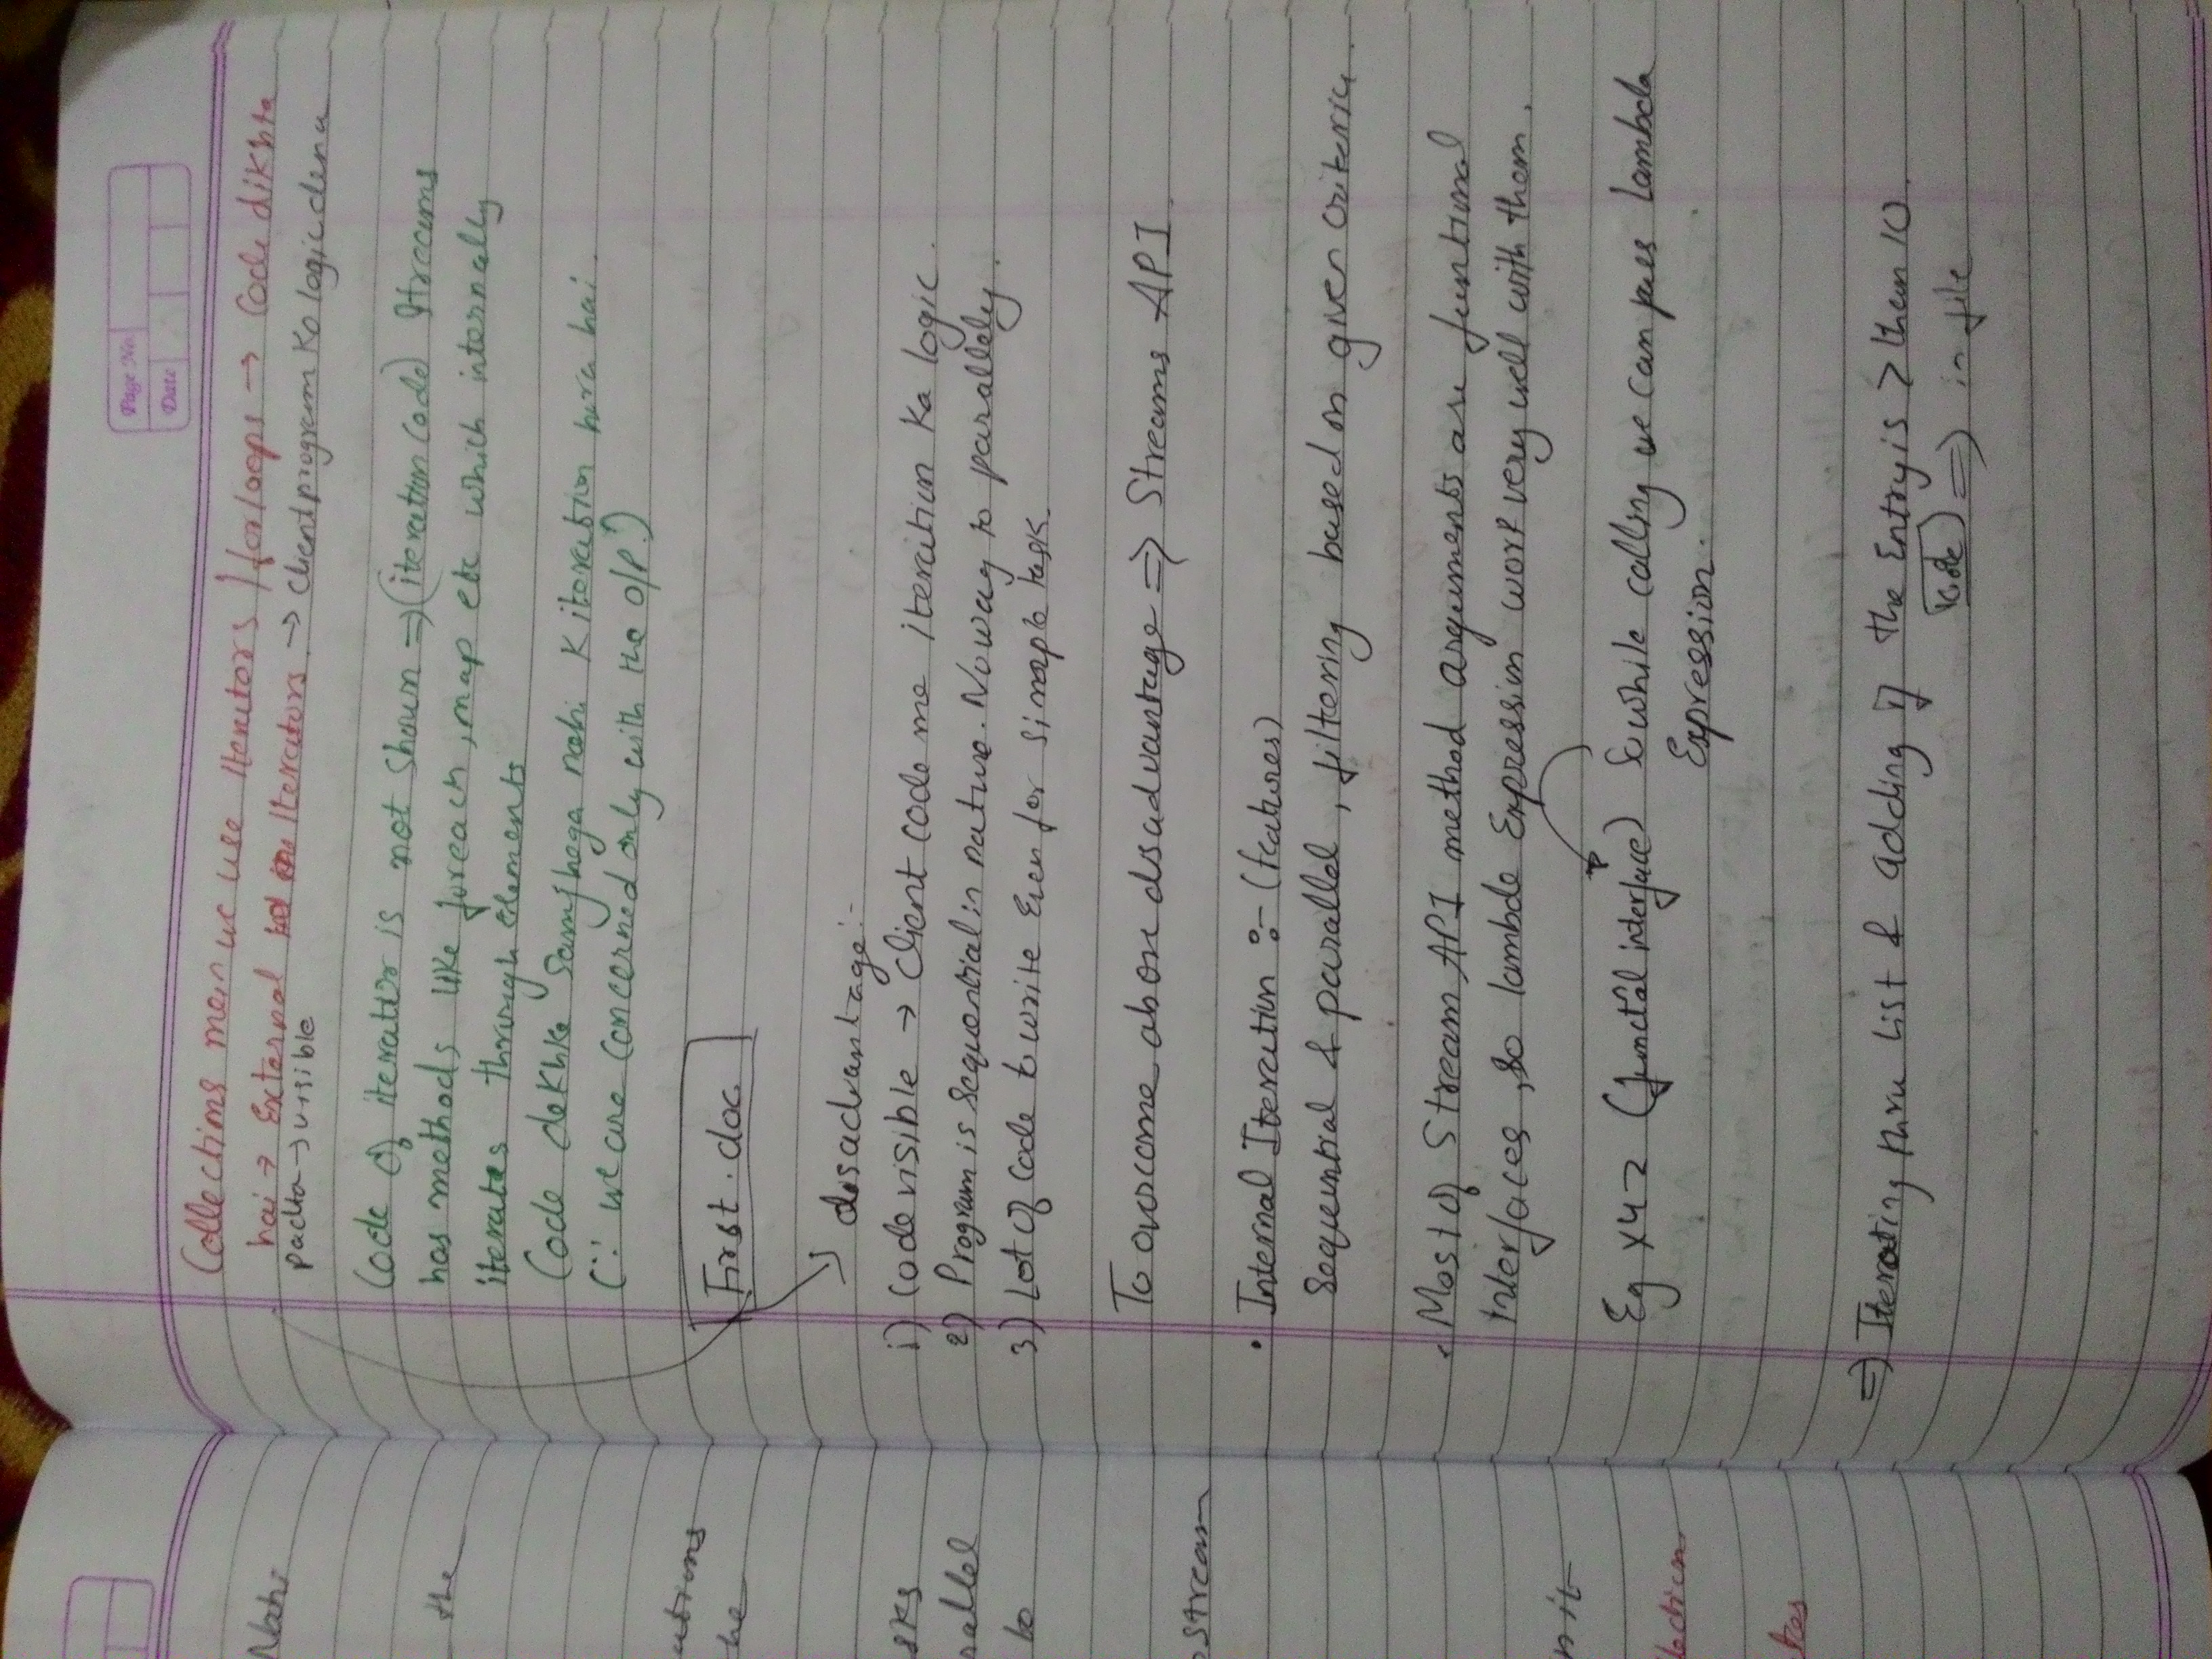 Nahi
the
utions
he
sks
rallel
to
stream
n it
lection
tes
Page No.
Date
Collections mein we use Iterators / for loops → Code dikhta
hai → External Iterators → Client program ko logic dena
padta → visible
Code of iterator is not shown ⇒ (iteration code) Streams
has methods like foreach, map etc which internally
iterates through elements
Code dekhke samjhega nahi k iteration hora hai.
(∵ we are concerned only with the o/p.)
First.doc
disadvantage:-
1) Code visible → Client code me iteration ka logic.
2) Program is sequential in nature. No way to parallely.
3) Lot of code to write even for simple task.
To overcome above disadvantage ⇒ Streams API
• Internal Iteration :- (features)
Sequential & parallel, filtering based on given criteria.
• Most of Stream API method arguments are funtional
Interfaces, so lambda Expression work very well with them.
Eg (functal interface) So while calling we can pass lambda
Expression.
⇒ Iterating thru list & adding if the entry is > than 10.
Code ⇒ in file